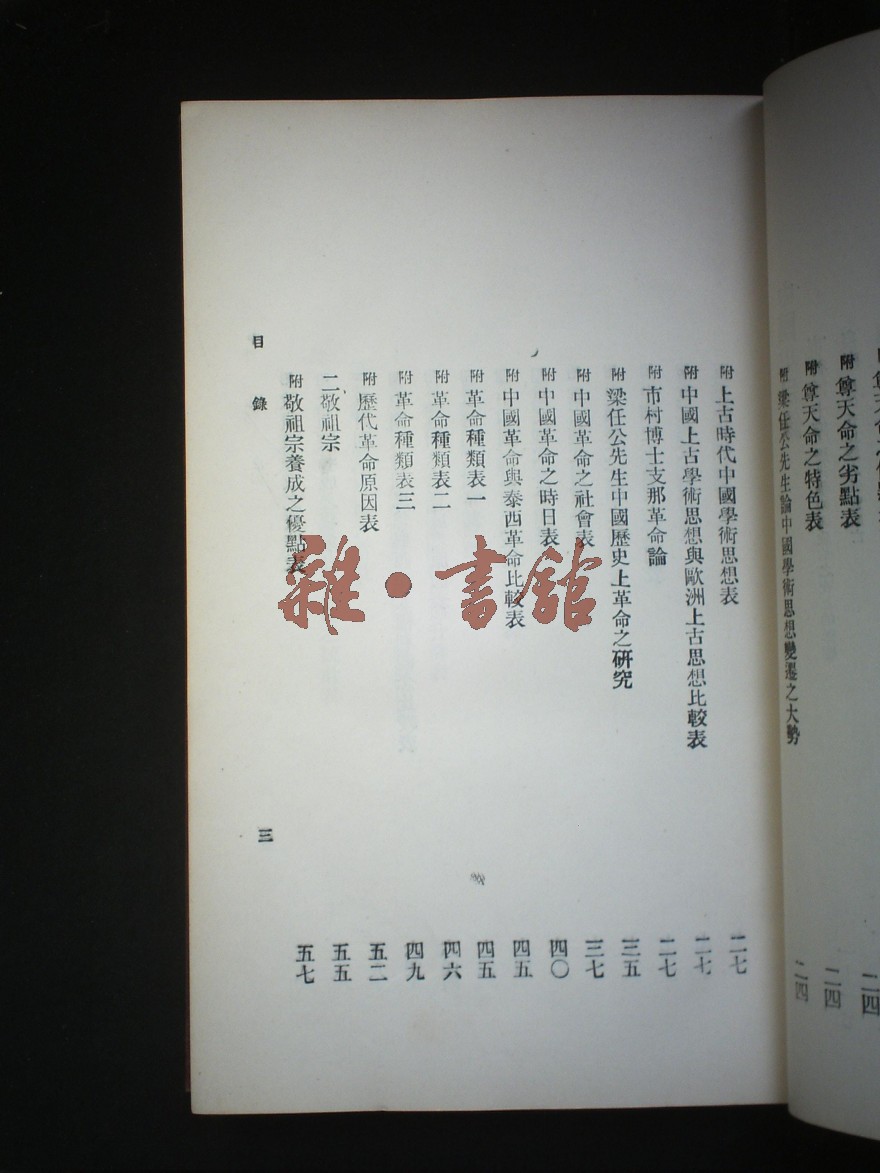 附 尊天命之劣點表 二四
附 尊天命之特色表 二四
附 梁任公先生論中國學術思想變遷之大勢 二四
附 上古時代中國學術思想表 二七
附 中國上古學術思想與歐洲上古思想比較表 二七
附 市村博士支那革命論 二七
附 梁任公先生中國歷史上革命之研究 三五
附 中國革命之社會表 三七
附 中國革命之時日表 四〇
附 中國革命與泰西革命比較表 四五
附 革命種類表一 四五
附 革命種類表二 四六
附 革命種類表三 四九
附 歷代革命原因表 五二
二、敬祖宗 五五
附 敬祖宗養成之優點表 五七
目錄 三
雜·書館